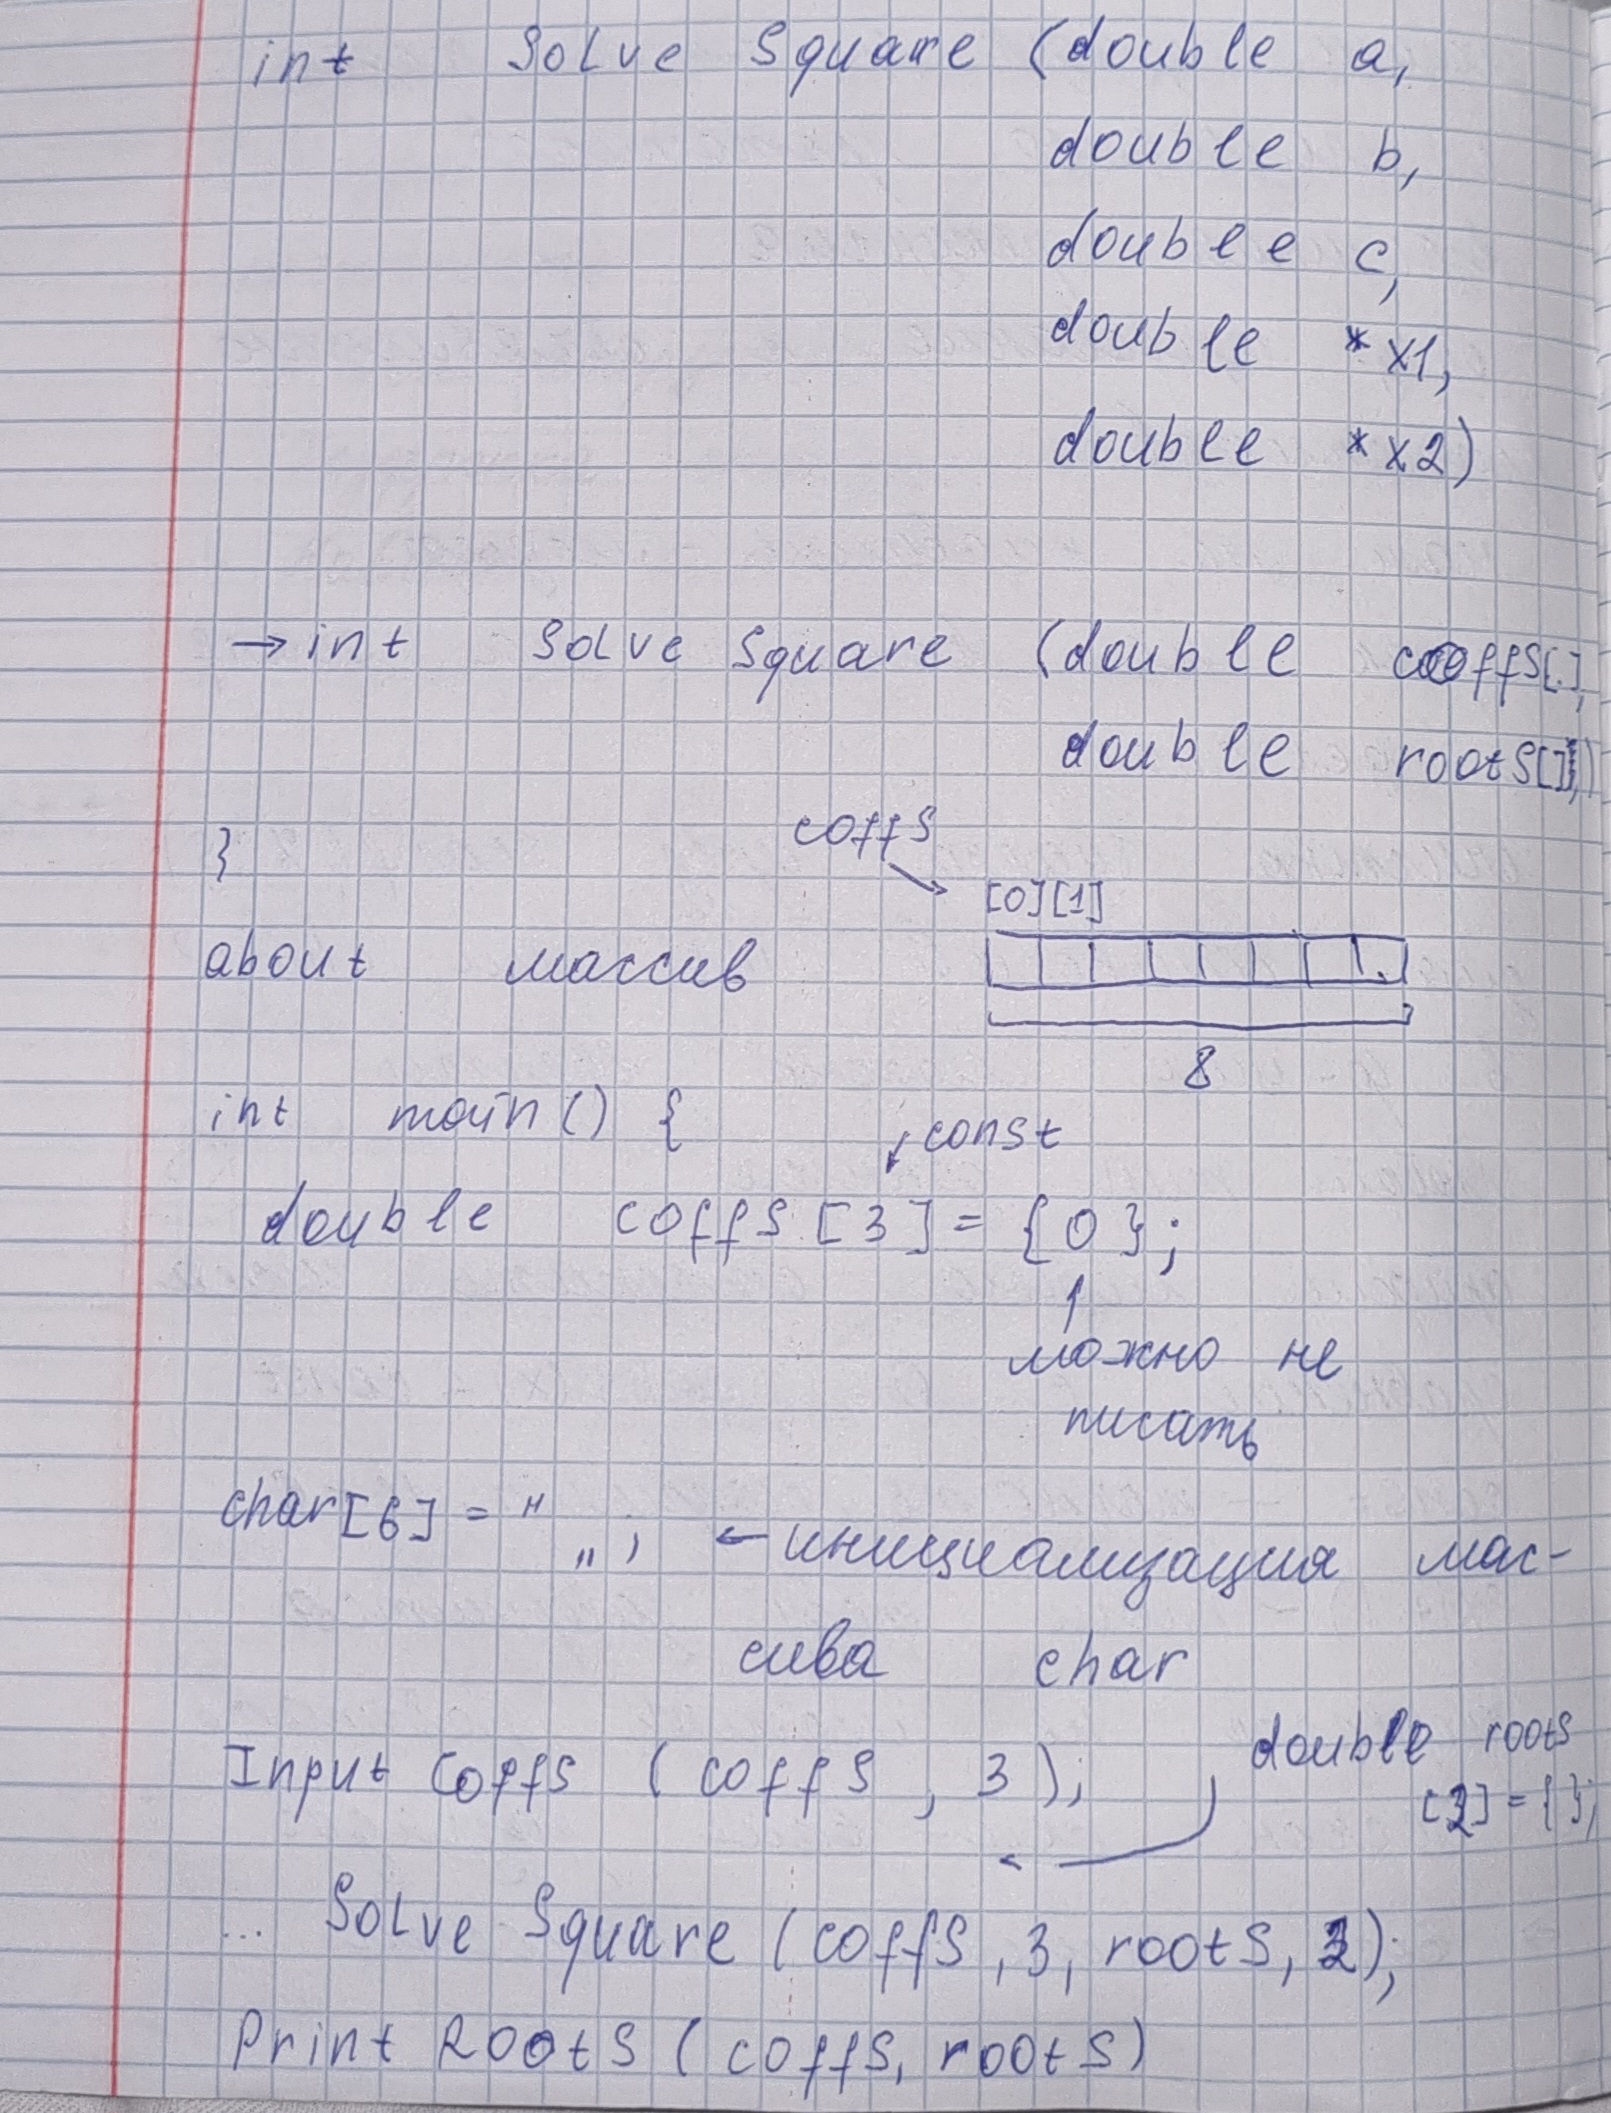 int Solve Square (double a,
double b,
double c,
double *x1,
double *x2)
→ int Solve Square (double coffs[],
double roots[])
}
coffs
[0][1]
about массив
8
int main() {
const
double coffs [3] = {0};
можно не
писать
char[6] = " „ ;
← инициализация мас-
сива char
double roots
[2] = { };
Input Coffs (coffs, 3);
... Solve Square (coffs, 3, roots, 2);
Print Roots (coffs, roots)